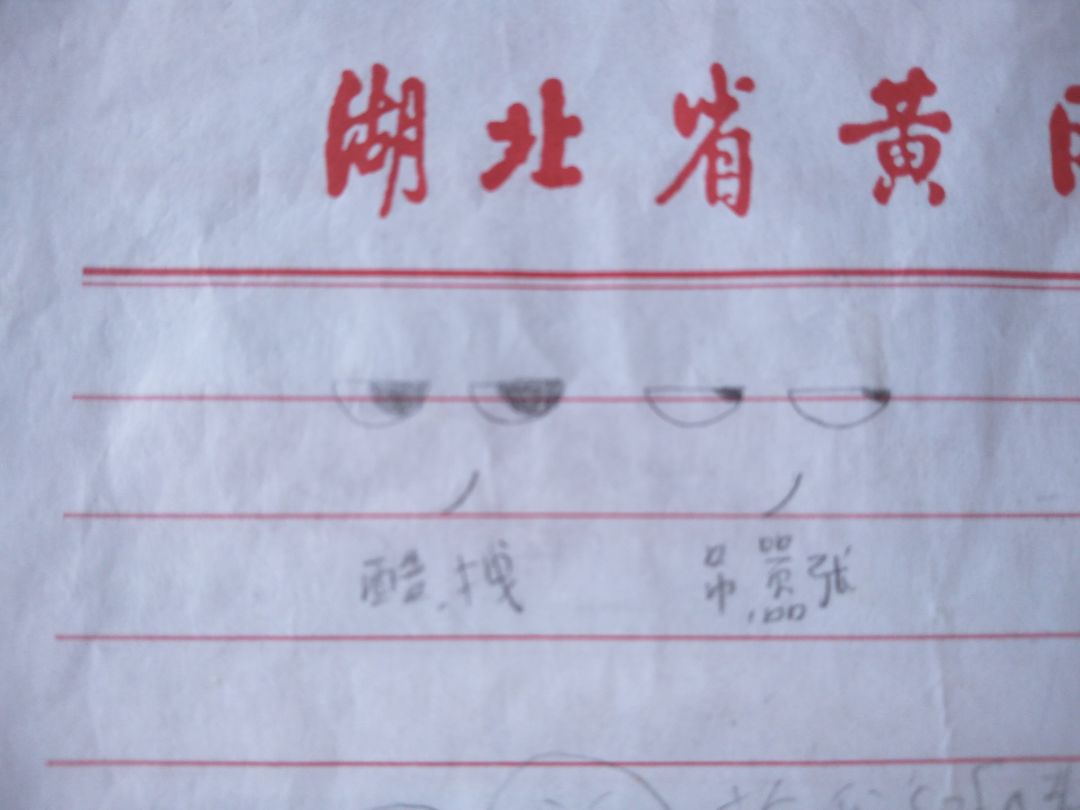 湖北省黄
酷.拽 吊.嚣张